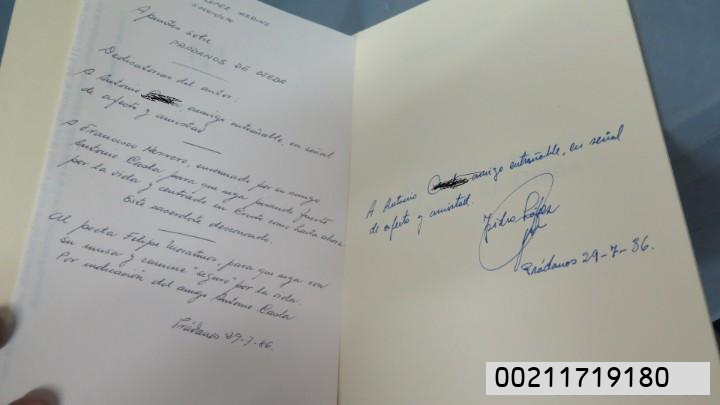 LOPEZ MERINO
Apuntes sobre
PRADANOS DE OJEDA
Dedicatorias del autor.
A Antonio amigo entrañable, en señal
de afecto y amistad
A Francisco Herrero, enviado por su amigo
Antonio para que siga pasando fuerte
por la vida y centrado en Cristo como hasta ahora
Este sacerdote desconocido.
Al poeta Felipe para que siga con
su musa y camine "seguro" por la vida.
Por indicación del amigo Antonio
Prádanos 29-7-86.
A Antonio amigo entrañable, en señal
de afecto y amistad.
Isidro López
Prádanos 29-7-86.
00211719180